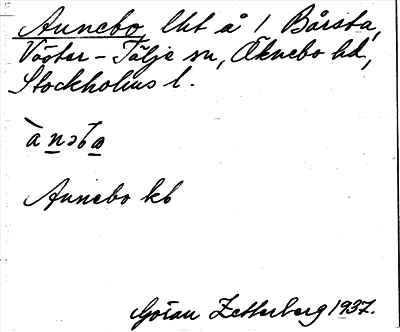 Aunebo, lht å 1 Bårsta,
Väster-Tälje sn, Öknebo hd,
Stockholms l.
Aunebo kb
Götan Zetterberg 1937.